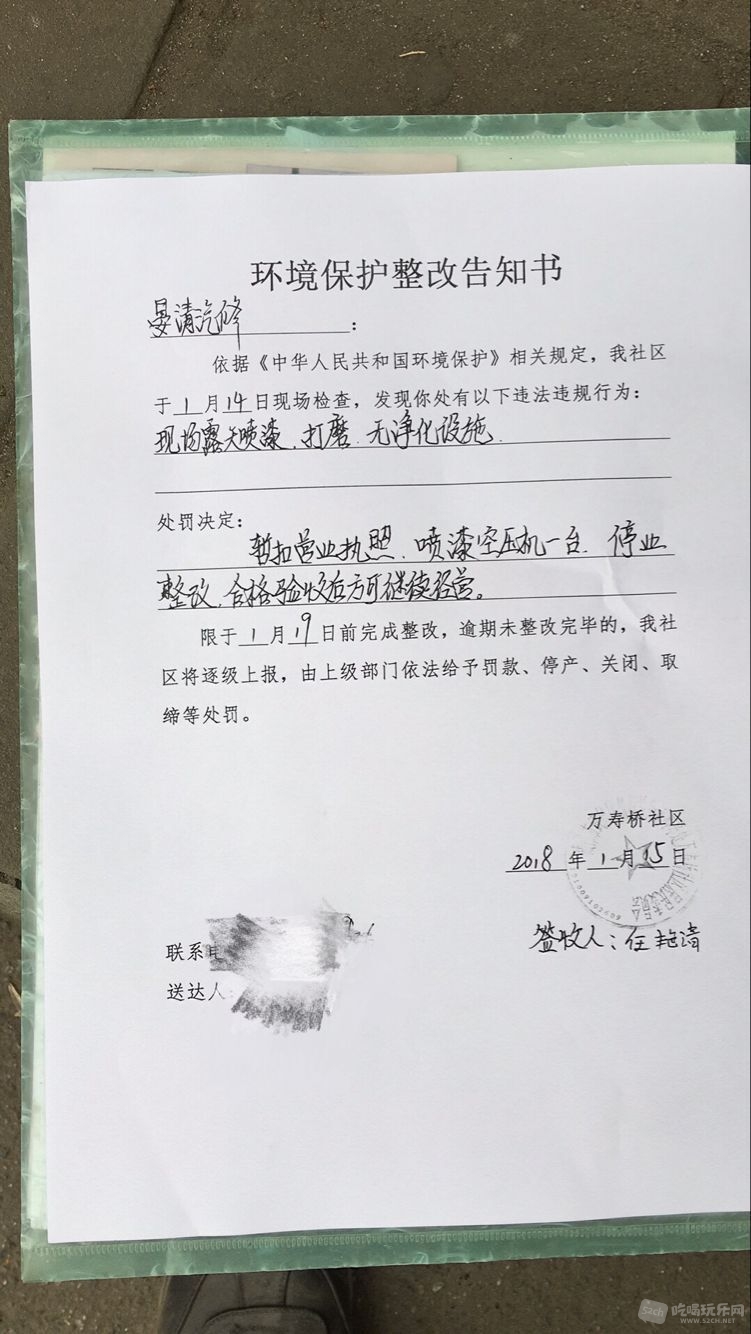 环境保护整改告知书
晏清汽修:
依据《中华人民共和国环境保护》相关规定,我社区
于1月14日现场检查,发现你处有以下违法违规行为:
现场露天喷漆、打磨、无净化设施.
处罚决定:
暂扣营业执照、喷漆空压机一台、停业
整改,合格验收后方可继续经营。
限于1月19日前完成整改,逾期未整改完毕的,我社
区将逐级上报,由上级部门依法给予罚款、停产、关闭、取
缔等处罚。
万寿桥社区
2018年1月15日
签收人:任艳清
联系
送达人
吃喝玩乐网
WWW.SZCH.NET